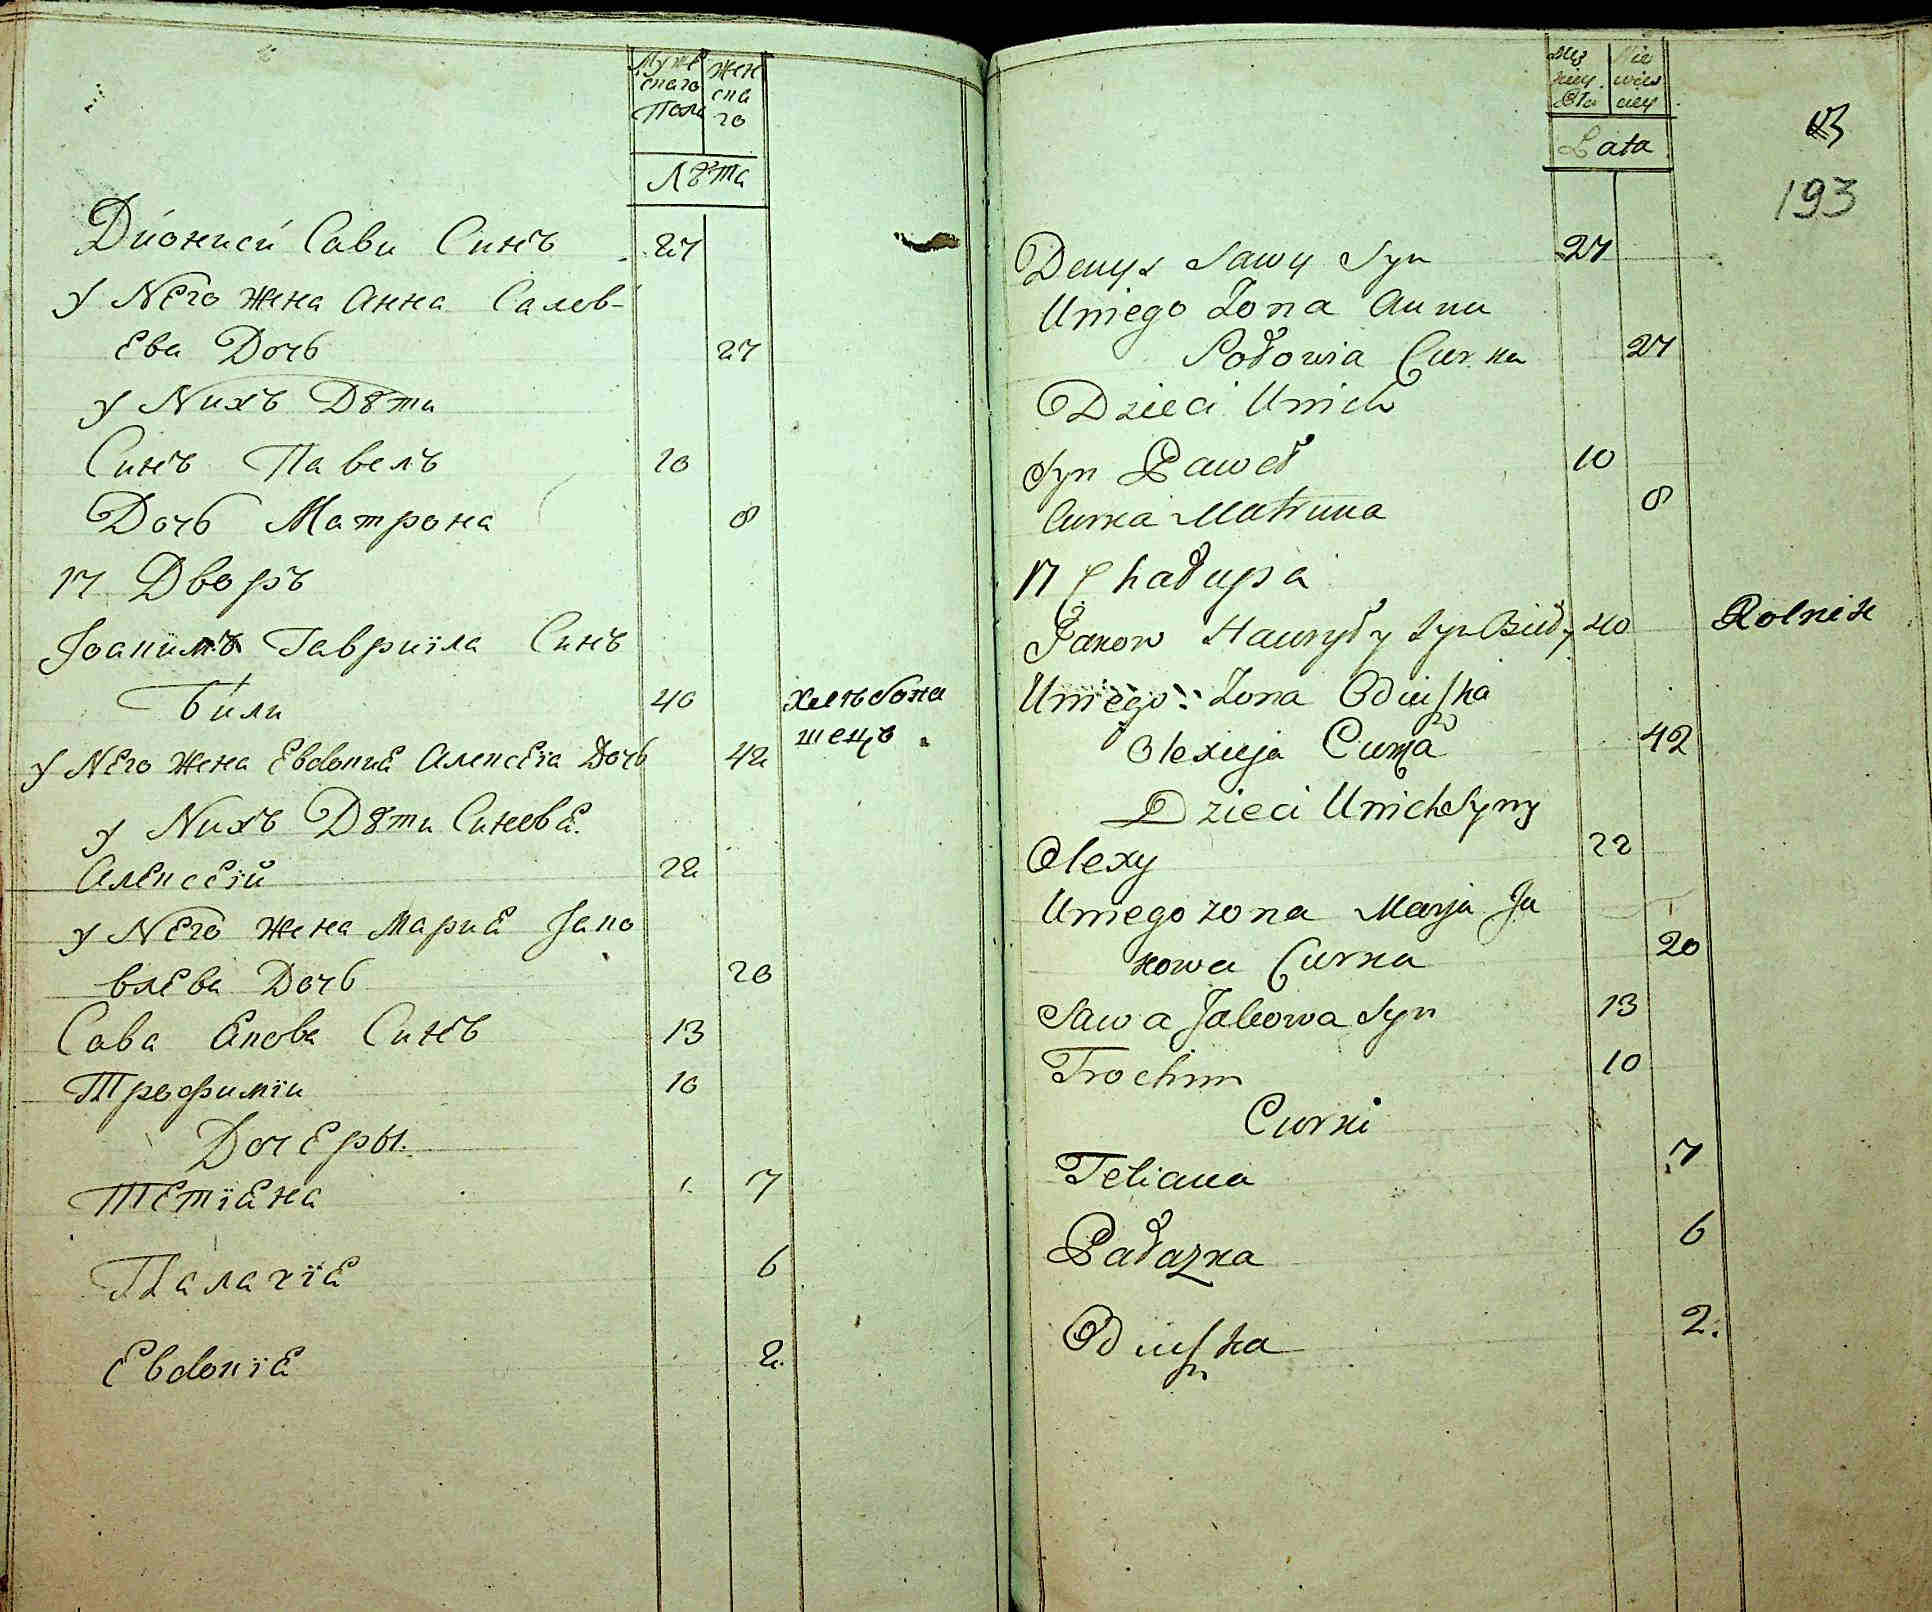 Мужескаго Пола
Женскаго
Лѣта
Диониси Сави Синъ 27
у Него жена Анна Салов-
ева Дочь 27
у Нихъ Дѣти
Синъ Павелъ 10
Дочь Матрона 8
17 Дворъ
Гавриїла Синъ
Били 40 хлѣбопа
шецъ
у Него жена Евдокиа Алексеїа Дочь 42
у Нихъ Дѣти Синова
Алексеїй 22
у Него жена Мариа Јако
влева Дочь 20
Сава Якова Синъ 13
Трофимїи 10
Дочеры
Тетїана 7
Палагїа 6
Евдокїа 2
Lata
193
Denys Sawy Syn 27
Uniego Żona Anna
Sołowia Curka 27
Dzieci Unich
Syn Paweł 10
Curka Matruna 8
17 Chałupa
Jakow Hawryły Syn Biły 40 Rolnik
Uniego Żona Oduszka
Olexieja Curka 42
Dzieci Unich Syny
Olexy 22
Uniego zona Marja Ja
kowa Curka 20
Sawa Jakowa Syn 13
Trochim 10
Curki
Tetiana 7
Pałazka 6
Oduszka 2.